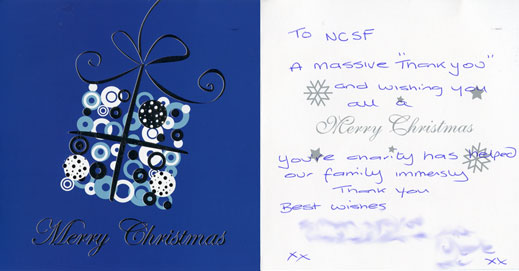 Merry Christmas
To NCSF
A massive "Thank you"
and wishing you
all a
Merry Christmas
you're charity has helped
our family immensly
Thank you
Best wishes
xx xx